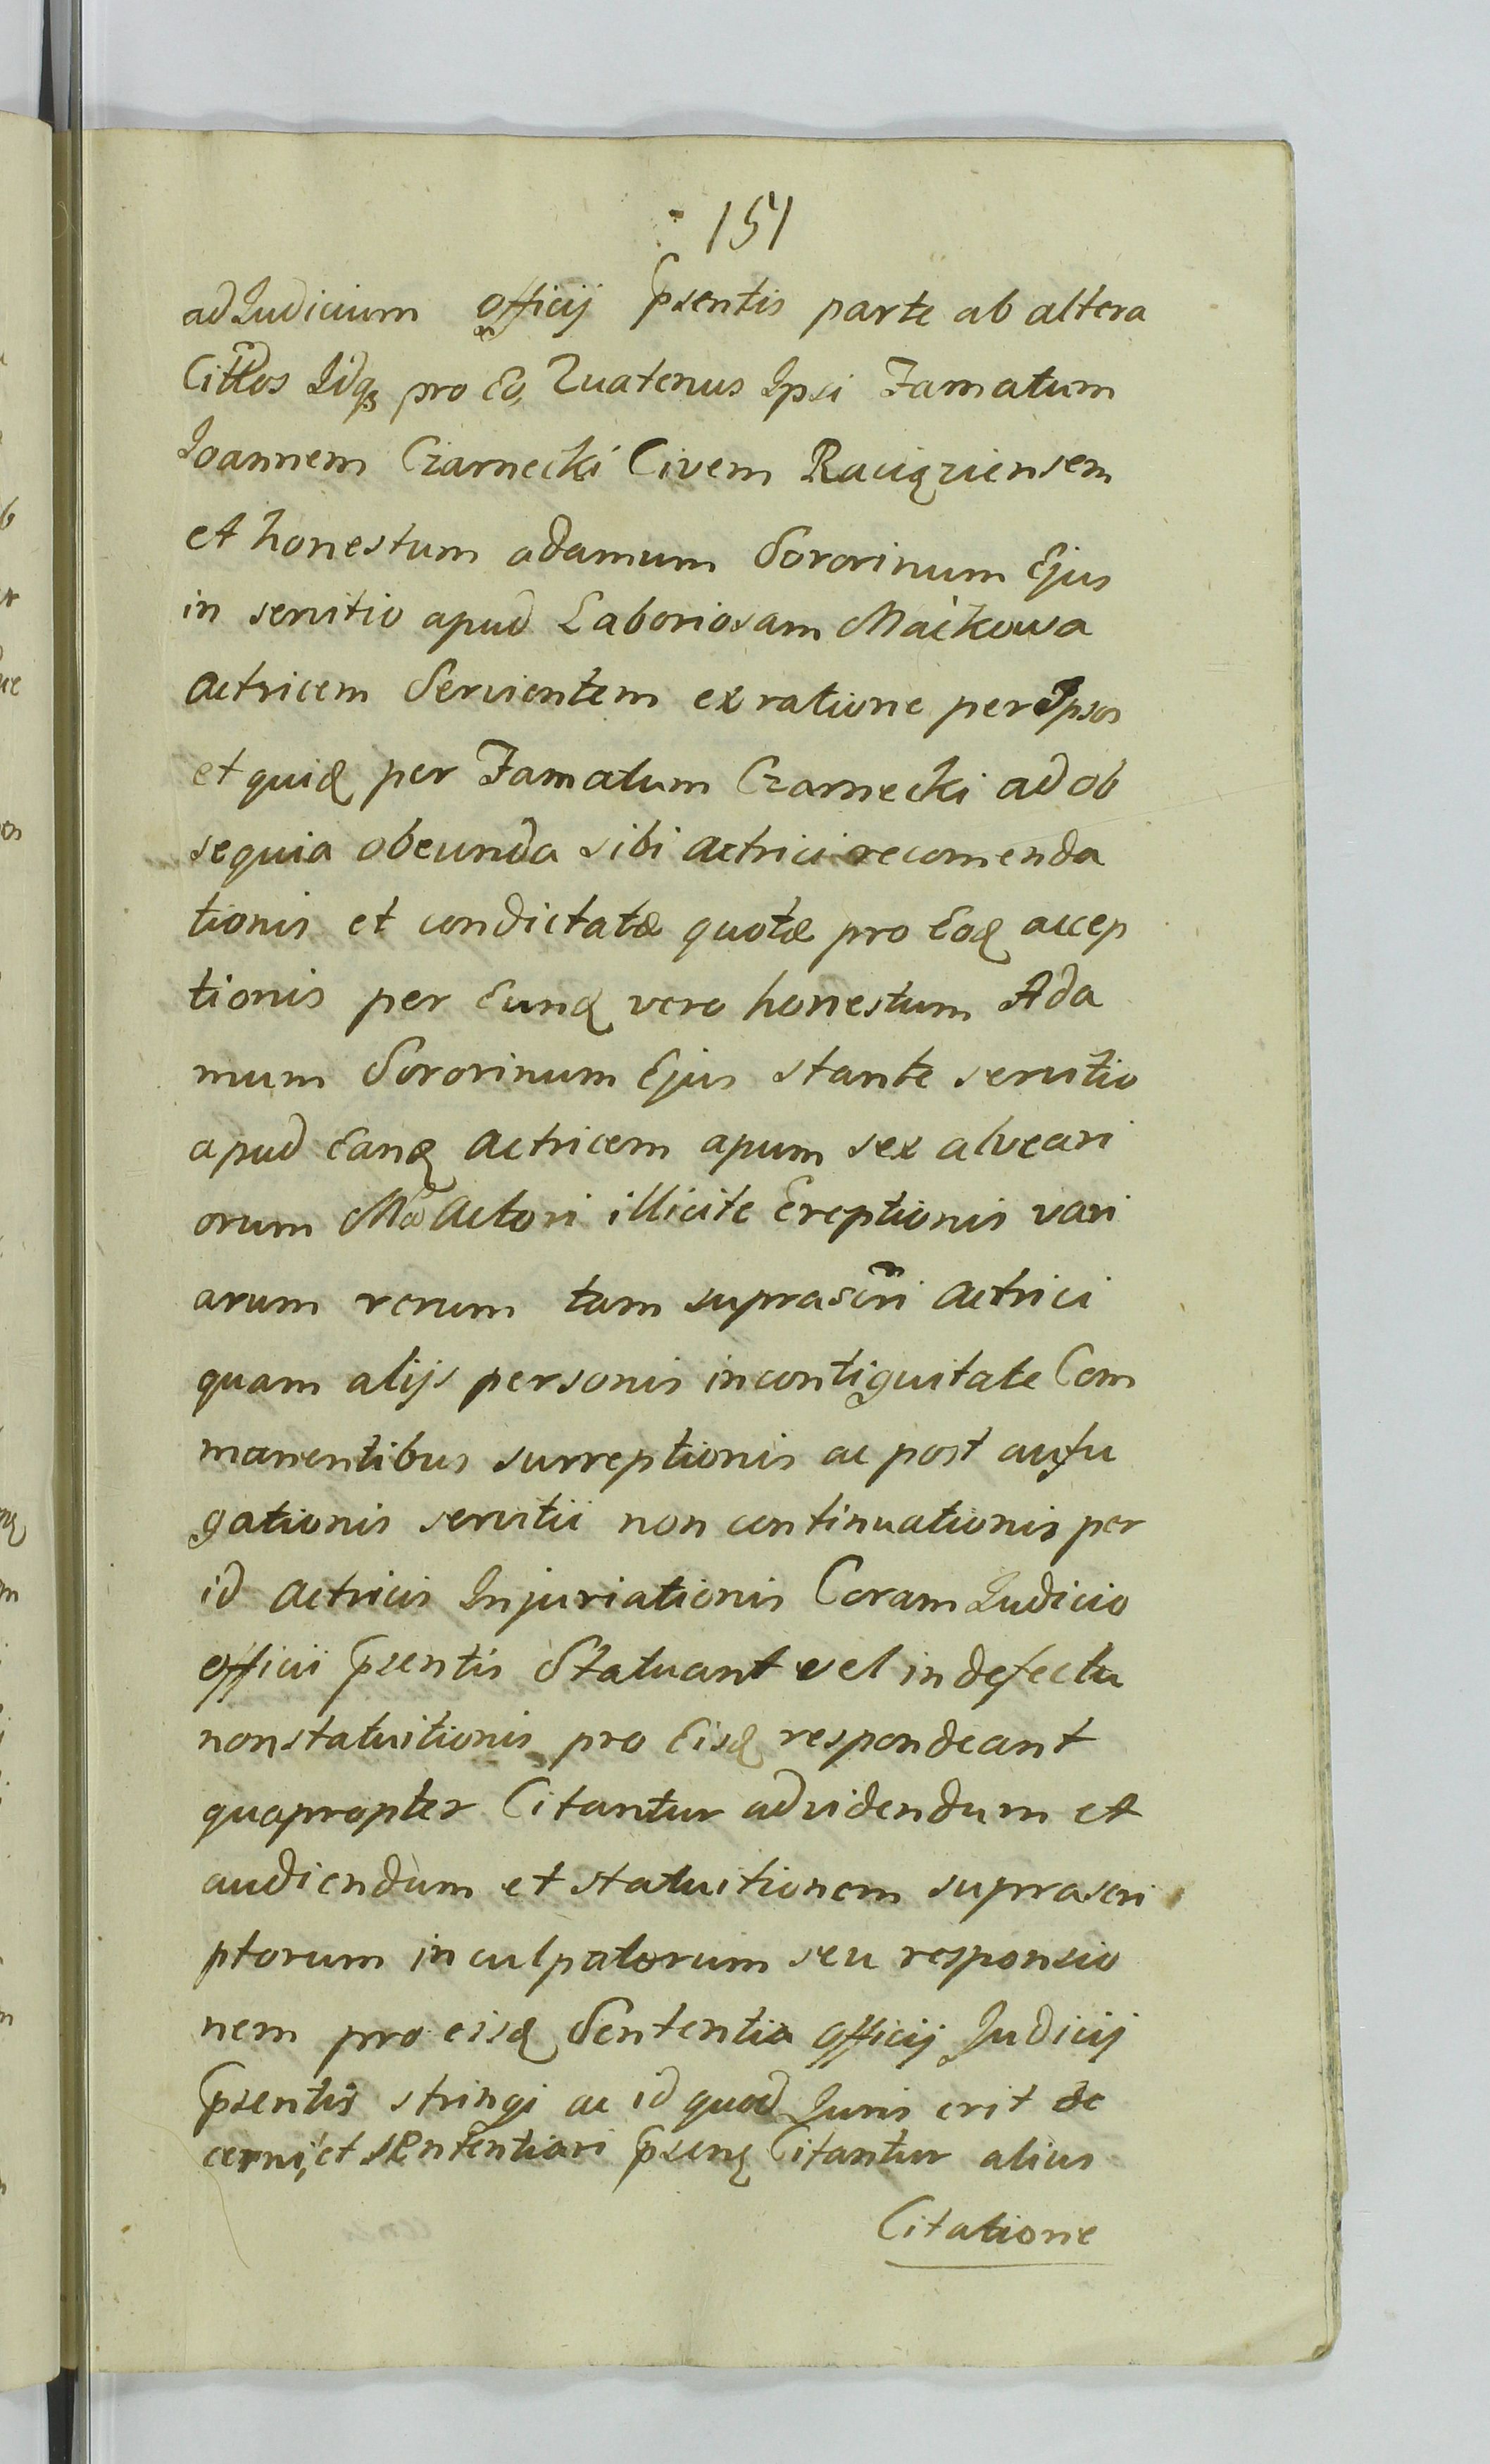 151
ad Judicium officij psentis parte ab altera
Cittos Idq pro Eo, Quatenus Ipsi Famatum
Joannem Czarnecki Civem Raciąziensem
et honestum adamum Sororinum Ejus
in servitio apud Laboriosam Maćkowa
actricem Servientem ex ratione per Ipsos
et quid per Famatum Czarnecki ad ob
sequia obeunda sibi actrici recomenda
tionis et condictatæ quotæ pro Eod accep
tionis per Eund vero honestum Ada
mum Sororinum Ejus stante servitio
apud Eand actricem apum sex alveari
orum Mco Actori illicite Ereptionis vari
arum rerum tam suprascri actrici
quam alijs personis in contiguitate Com
manentibus surreptionis ac post aufu
gationis servitii non continuationis per
id actricis Injuriationis Coram Judicio
officii psentis Statuant vel in defectu
non statuitionis pro Eisd respondeant
quapropter Citantur ad videndum et
audiendum et statuitionem suprascri
ptorum inculpatorum seu responsio
nem pro eisd Sententia officij Judicij
psentis stringi ac id quod Juris erit de
cerni, et sententiari psenq Citantur alius
Citatione